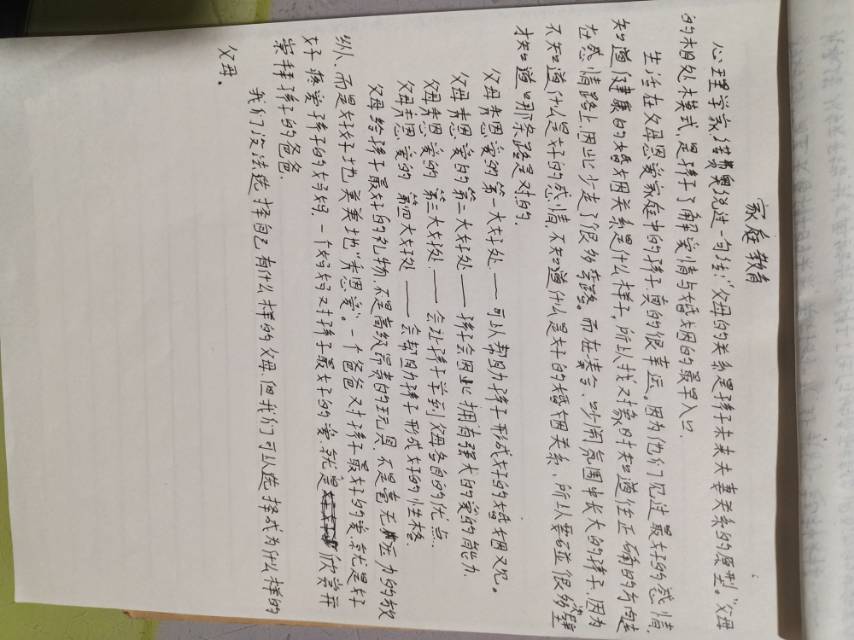 家庭教育
心理学家经典说过一句话:“父母的关系是孩子未来夫妻关系的原型。”父母
的相处模式,是孩子了解爱情与婚姻的最早入口.
生活在父母恩爱家庭中的孩子,真的很幸运。因为他们见过最好的感情
知道健康的婚姻关系是什么样子,所以找对象时知道往正确的方向走
在感情路上,因此少走了很多弯路。而在凑合、吵闹氛围中长大的孩子,因为
不知道什么是好的感情,不知道什么是好的婚姻关系,所以要碰很多壁
才知道哪条路是对的.
父母秀恩爱的第一大好处——可以帮助孩子形成好的婚姻观。
父母秀恩爱的第二大好处——孩子会因此拥有强大的爱的能力.
父母秀恩爱的第三大好处——会让孩子学到父母各自的优点.
父母秀恩爱的第四大好处——会帮助孩子形成好的性格.
父母给孩子最好的礼物,不是高级昂贵的玩具,不是毫无压力的放
纵、而是好好地美美地“秀恩爱”.一个爸爸对孩子最好的爱,就是好
好疼爱孩子的妈妈.一个妈妈对孩子最好的爱,就是欣赏并
崇拜孩子的爸爸.
我们没法选择自己有什么样的父母,但我们可以选择成为什么样的
父母。